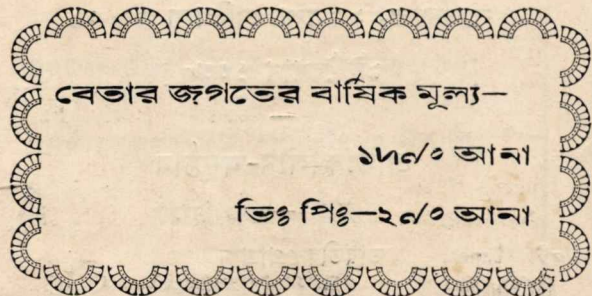 বেতার জগতের বার্ষিক মূল্য—
১৸৶০ আনা
ভিঃ পিঃ—২৶০ আনা